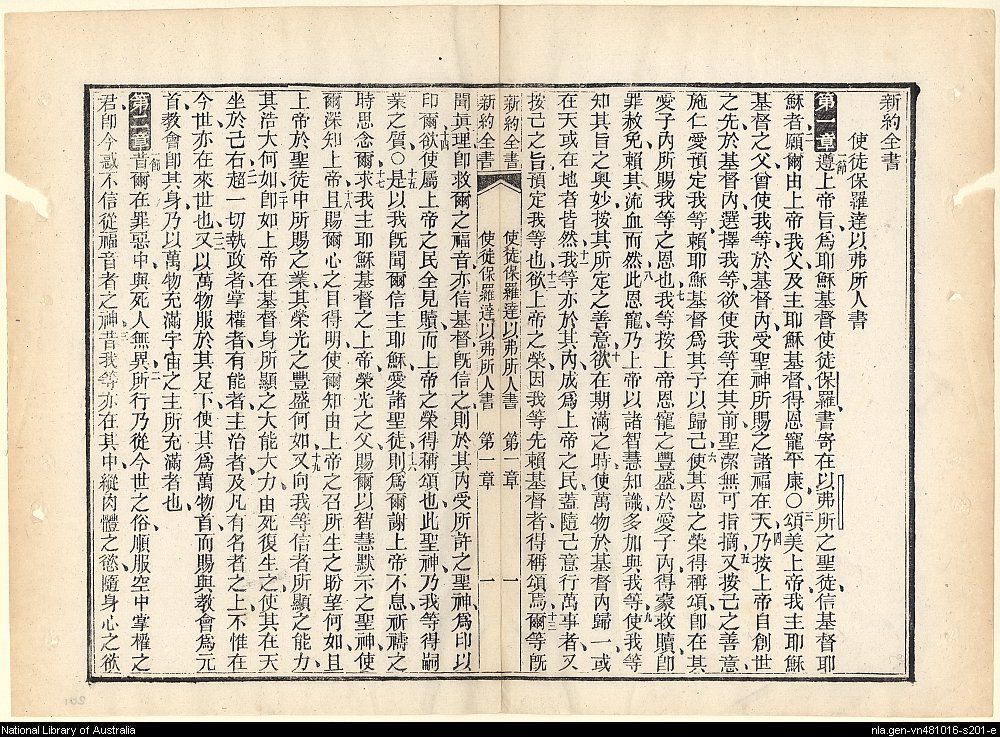 新約全書
使徒保羅達以弗所人書
第一章遵上帝旨爲耶穌基督使徒保羅書寄在以弗所之聖徒信基督耶
穌者願爾由上帝我父及主耶穌基督得恩寵平康〇頌美上帝我主耶穌
基督之父曾使我等於基督內受聖神所賜之諸福在天乃按上帝自創世
之先於基督內選擇我等欲使我等在其前聖潔無可指摘又按己之善意
施仁愛預定我等賴耶穌基督爲其子以歸己使其恩之榮得稱頌卽在其
愛子內所賜我等之恩也我等按上帝恩寵之豐盛於愛子內得蒙救贖卽
罪赦免賴其流血而然此恩寵乃上帝以諸智慧知識多加與我等使我等
知其旨之奧妙按其所定之善意欲在期滿之時使萬物於基督內歸一或
在天或在地者皆然我等亦於其內成爲上帝之民蓋隨己意行萬事者又
按己之旨預定我等也欲上帝之榮因我等先賴基督者得稱頌焉爾等旣
新約全書 使徒保羅達以弗所人書 第一章 一
新約全書 使徒保羅達以弗所人書 第一章 一
聞眞理卽救爾之福音亦信基督旣信之則於其內受所許之聖神爲印以
印爾欲使屬上帝之民全見贖而上帝之榮得稱頌也此聖神乃我等得嗣
業之質〇是以我旣聞爾信主耶穌愛諸聖徒則爲爾謝上帝不息祈禱之
時思念爾求我主耶穌基督之上帝榮光之父賜爾以智慧默示之聖神使
爾深知上帝且賜爾心之目得明使爾知由上帝之召所生之盼望何如且
上帝於聖徒中所賜之業其榮光之豐盛何如又向我等信者所顯之能力
其浩大何如卽如上帝在基督身所顯之大能大力由死復生之使其在天
坐於己右超一切執政者掌權者有能者主治者及凡有名者之上不惟在
今世亦在來世也又以萬物服於其足下使其爲萬物首而賜與教會爲元
首教會卽其身乃以萬物充滿宇宙之主所充滿者也
第二章昔爾在罪惡中與死人無異所行乃從今世之俗順服空中掌權之
君卽今惑不信從福音者之神昔我等亦在其中縱肉體之慾隨身心之欲
National Library of Australia
nla.gen-vn481016-s201-e